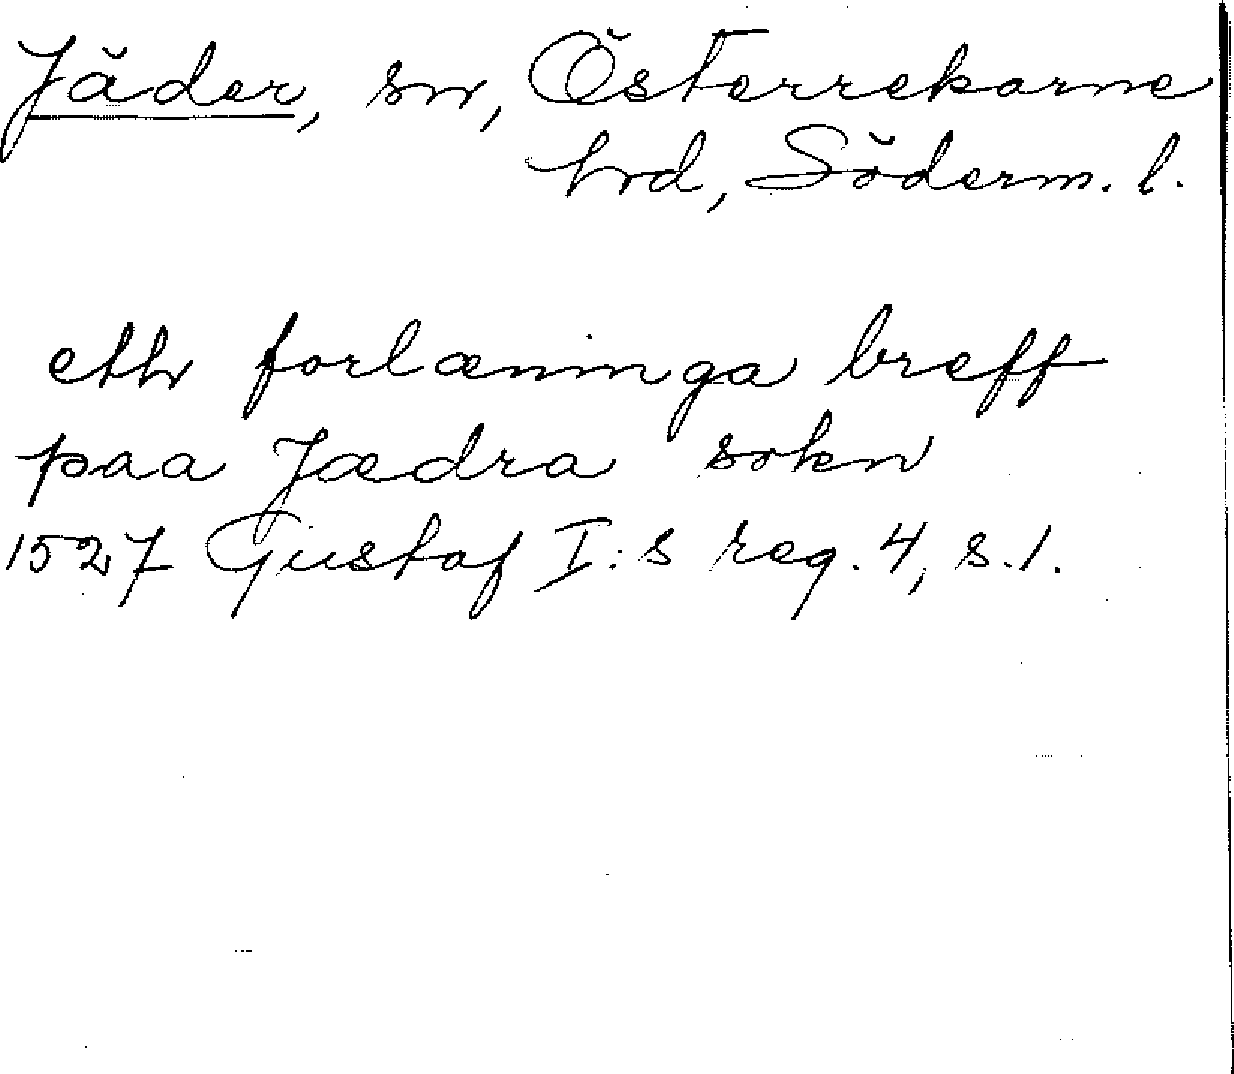 Jäder, sn, Österrekarne
hrd, Söderm. l.
eth forlæninga breff
paa Jædra sokn
1527 Gustaf I:s reg. 4, s. 1.